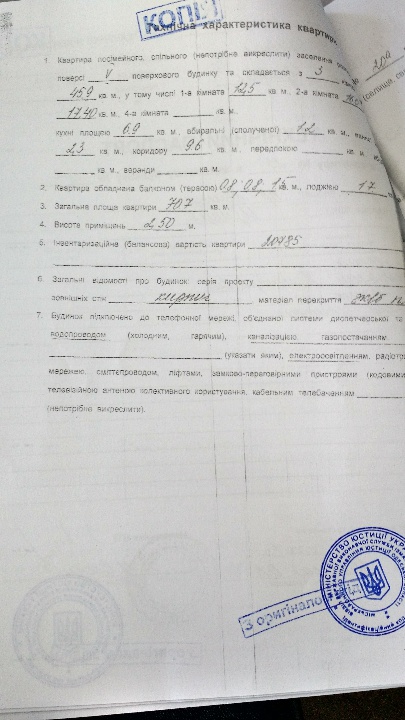 КОПІЯ
Технічна характеристика квартири
1. Квартира посімейного, спільного (непотрібне викреслити) заселення
поверсі V поверхового будинку та складається з 3
45,9 кв. м., у тому числі 1-а кімната 12,5 кв. м., 2-а кімната
17,40 кв. м., 4-а кімната кв. м.,
кухні площею 6,9 кв. м., вбиральні (сполученої) 1,2 кв. м.,
2,3 кв. м., коридору 9,6 кв. м., передпокою кв. м.,
кв. м., веранди кв. м.
2. Квартира обладнана балконом (терасою) 0,8, 0,8, кв. м., лоджією 1,7
3. Загальна площа квартири 70,7 кв. м.
4. Висота приміщень 2,50 м.
5. Інвентаризаційна (балансова) вартість квартири 20485
6. Загальні відомості про будинок: серія проекту
зовнішніх стін матеріал перекриття
7. Будинок підключено до телефонної мережі, об'єднаної системи диспетчерської та
водопроводом (холодним, гарячим), каналізацією, газопостачанням
(указати яким), електроосвітленням,
мережею, сміттєпроводом, ліфтами, замково-переговорними пристроями (кодовими
телевізійною антеною колективного користування, кабельним телебаченням
(непотрібно викреслити).
З оригіналом
МІНІСТЕРСТВО ЮСТИЦІЇ